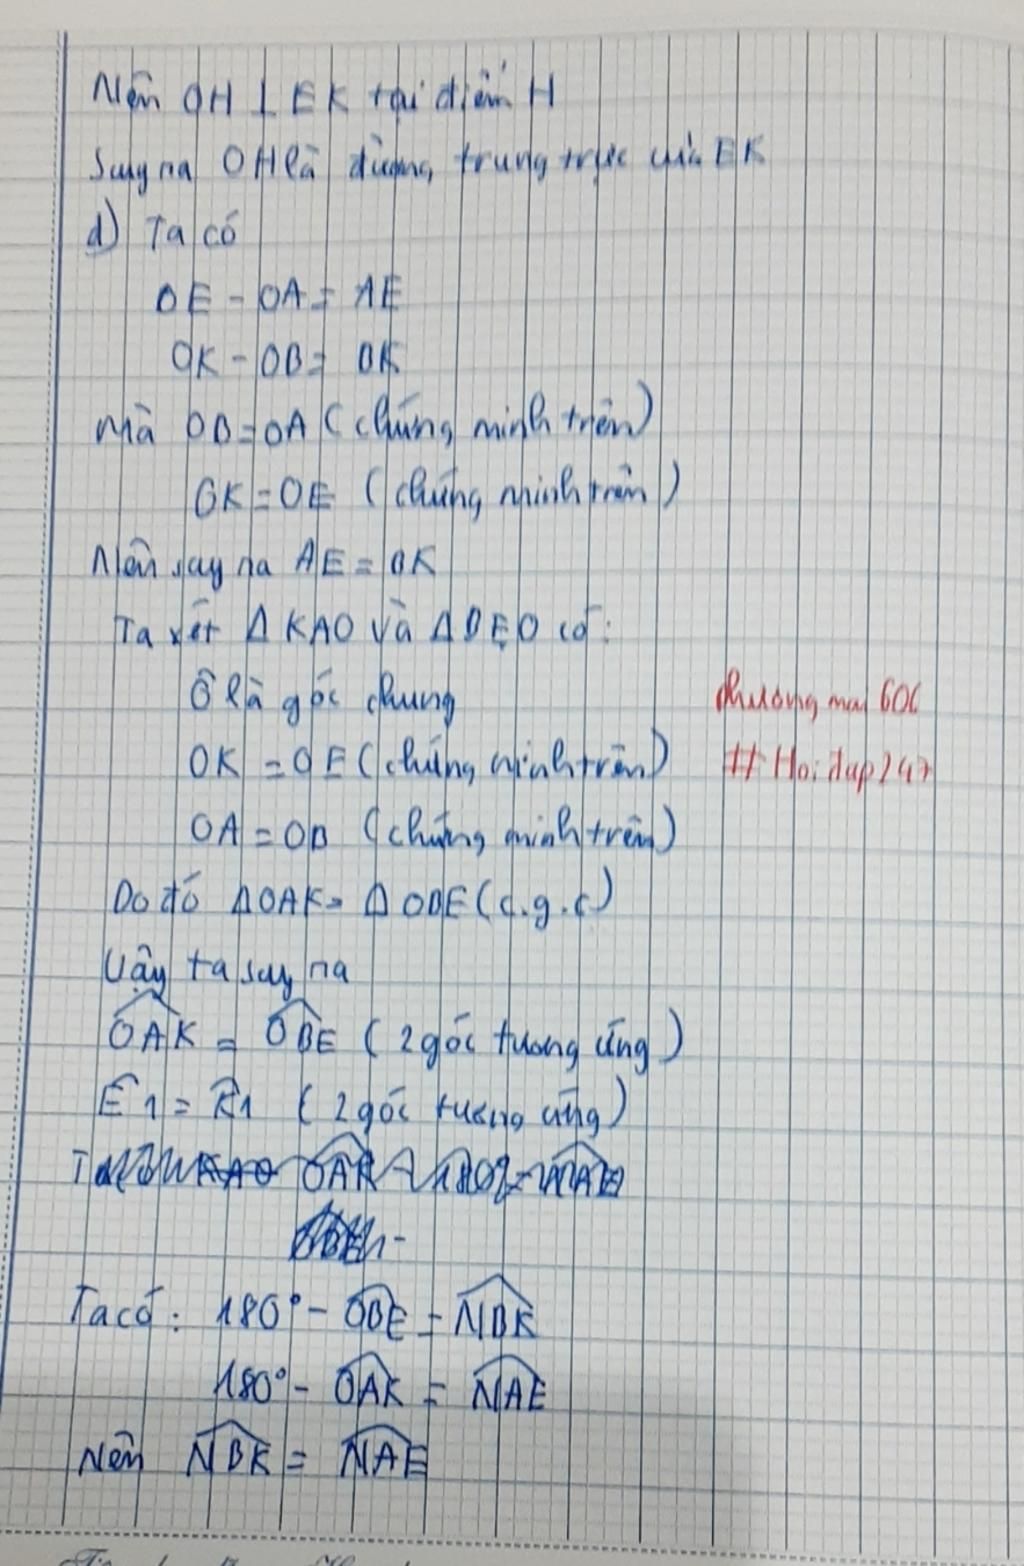 Nên OH ⊥ EK tại điểm H
Suy ra OH là đường trung trực của EK
d) Ta có
OE - OA = AE
OK - OB = BK
mà OB = OA (chứng minh trên)
OK = OE (chứng minh trên)
Nên suy ra AE = BK
Ta xét Δ KAO và Δ BEO có:
Ô là góc chung
phuongmai 606
OK = OE (chứng minh trên)
# Hoidap247
OA = OB (chứng minh trên)
Do đó ΔOAK = ΔOBE (c.g.c)
Vậy ta suy ra
\widehat{OAK} = \widehat{OBE} (2 góc tương ứng)
\widehat{E}1 = \widehat{K}1 (2 góc tương ứng)
Ta có: 180° - \widehat{OBE} = \widehat{NBK}
180° - \widehat{OAK} = \widehat{NAE}
Nên \widehat{NBK} = \widehat{NAE}